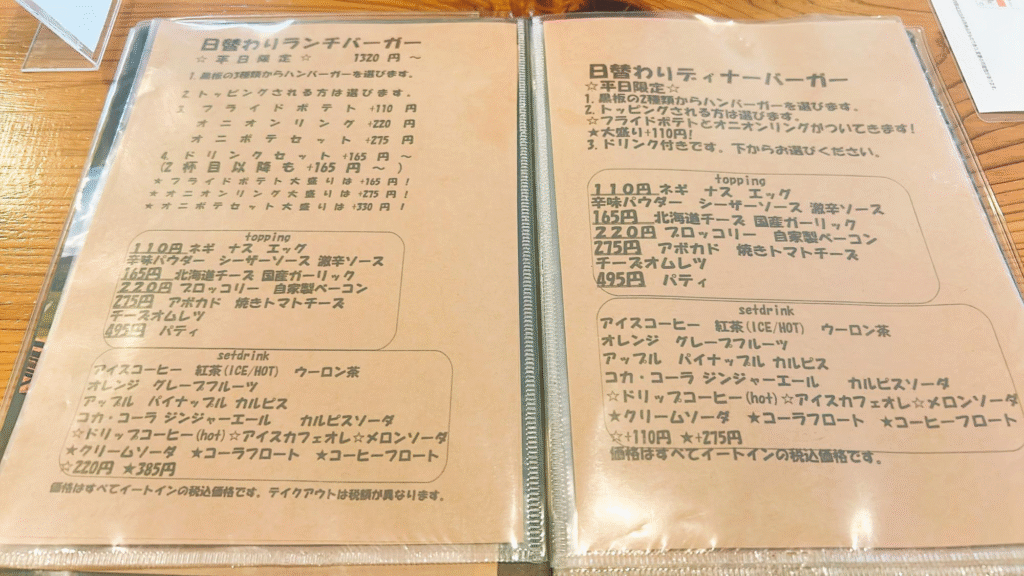 日替わりランチバーガー
☆ 平日限定 ☆ 1320 円 ~
1. 黒板の3種類からハンバーガーを選びます。
2. トッピングされる方は選びます。
3. フライドポテト +110 円
オニオンリング +220 円
オニポテセット +275 円
4. ドリンクセット +165 円 ~
(2 杯目以降も +165 円 ~ )
★ フライドポテト大盛りは +165 円 !
★ オニオンリング大盛りは +275 円 !
★ オニポテセット大盛りは +330 円 !
topping
110円 ネギ ナス エッグ
辛味パウダー シーザーソース 激辛ソース
165円 北海道チーズ 国産ガーリック
220円 ブロッコリー 自家製ベーコン
275円 アボカド 焼きトマトチーズ
チーズオムレツ
495円 パティ
setdrink
アイスコーヒー 紅茶(ICE/HOT) ウーロン茶
オレンジ グレープフルーツ
アップル パイナップル カルピス
コカ・コーラ ジンジャーエール カルピスソーダ
☆ドリップコーヒー(hot)☆アイスカフェオレ☆メロンソーダ
★クリームソーダ ★コーラフロート ★コーヒーフロート
☆220円 ★385円
価格はすべてイートインの税込価格です。テイクアウトは税額が異なります。
日替わりディナーバーガー
☆平日限定☆
1. 黒板の2種類からハンバーガーを選びます。
2. トッピングされる方は選びます。
☆フライドポテトとオニオンリングがついてきます!
★大盛り+110円!
3. ドリンク付きです。下からお選びください。
topping
110円 ネギ ナス エッグ
辛味パウダー シーザーソース 激辛ソース
165円 北海道チーズ 国産ガーリック
220円 ブロッコリー 自家製ベーコン
275円 アボカド 焼きトマトチーズ
チーズオムレツ
495円 パティ
setdrink
アイスコーヒー 紅茶(ICE/HOT) ウーロン茶
オレンジ グレープフルーツ
アップル パイナップル カルピス
コカ・コーラ ジンジャーエール カルピスソーダ
☆ドリップコーヒー(hot)☆アイスカフェオレ☆メロンソーダ
★クリームソーダ ★コーラフロート ★コーヒーフロート
☆+110円 ★+275円
価格はすべてイートインの税込価格です。